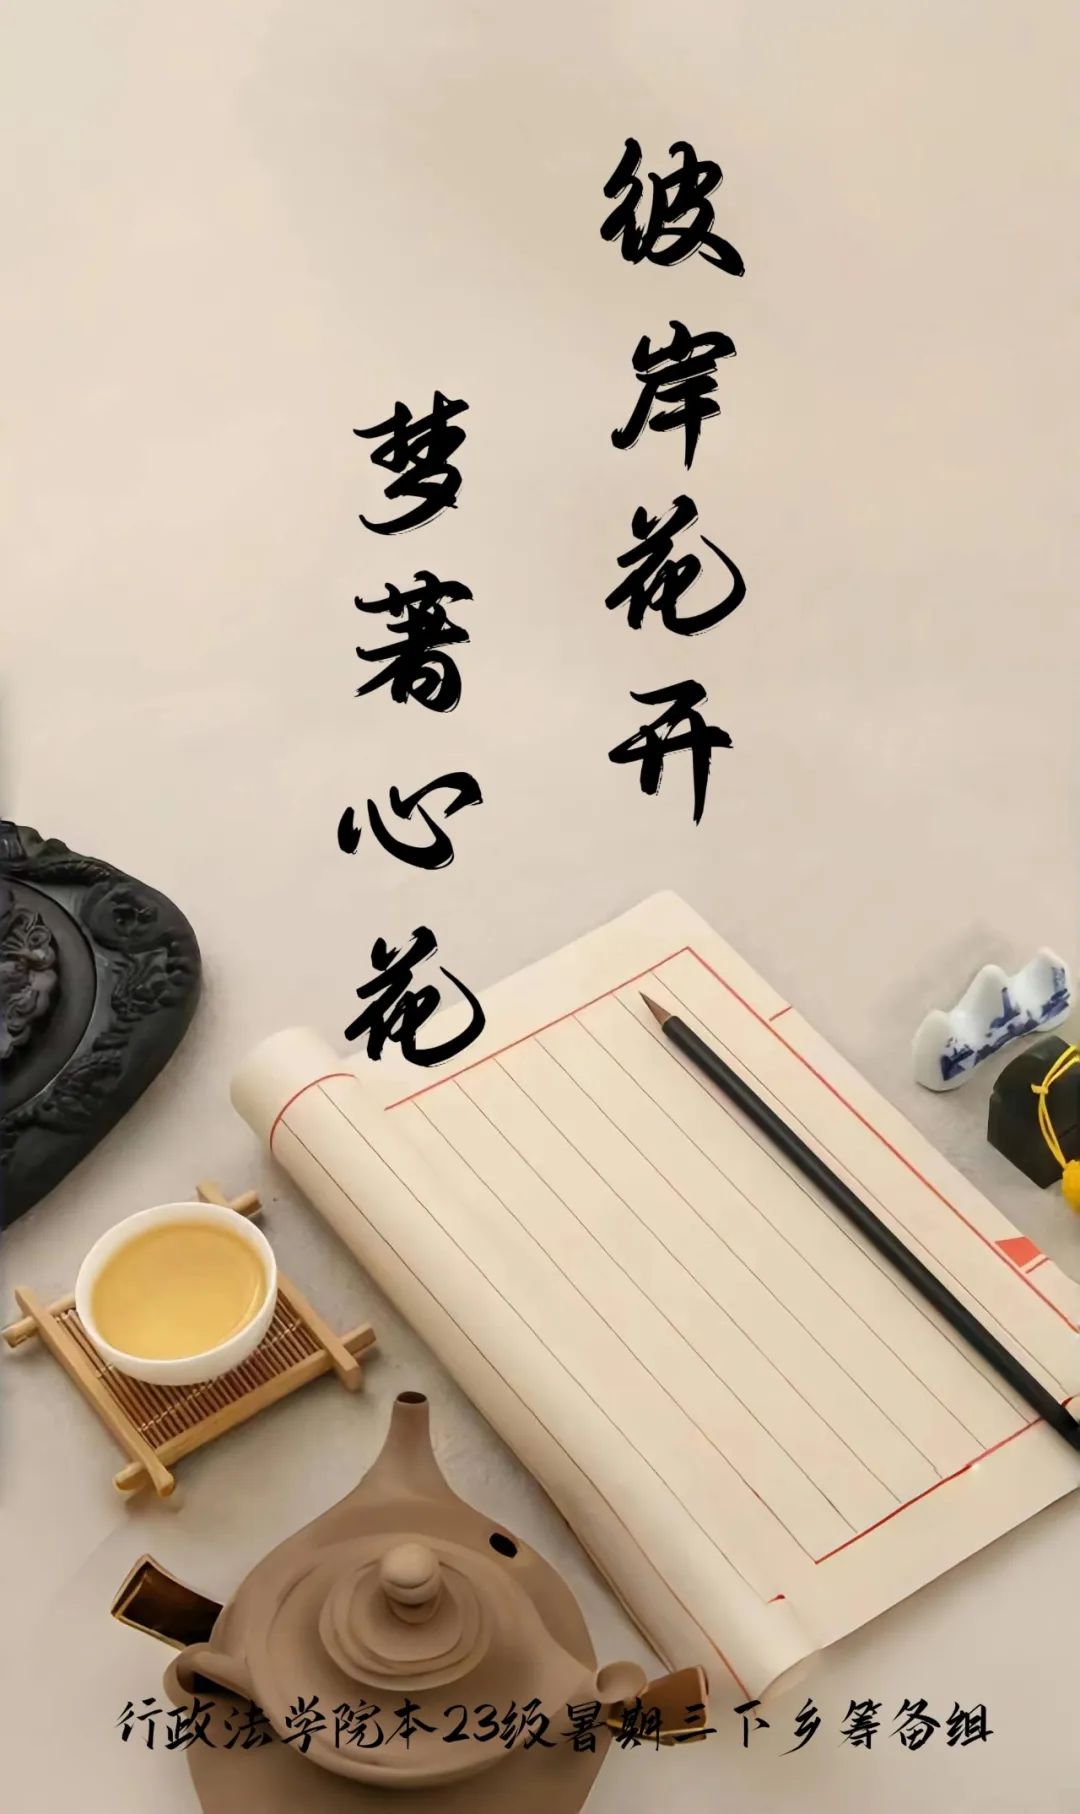 彼岸花开
梦著心花
行政法学院本23级暑期三下乡筹备组